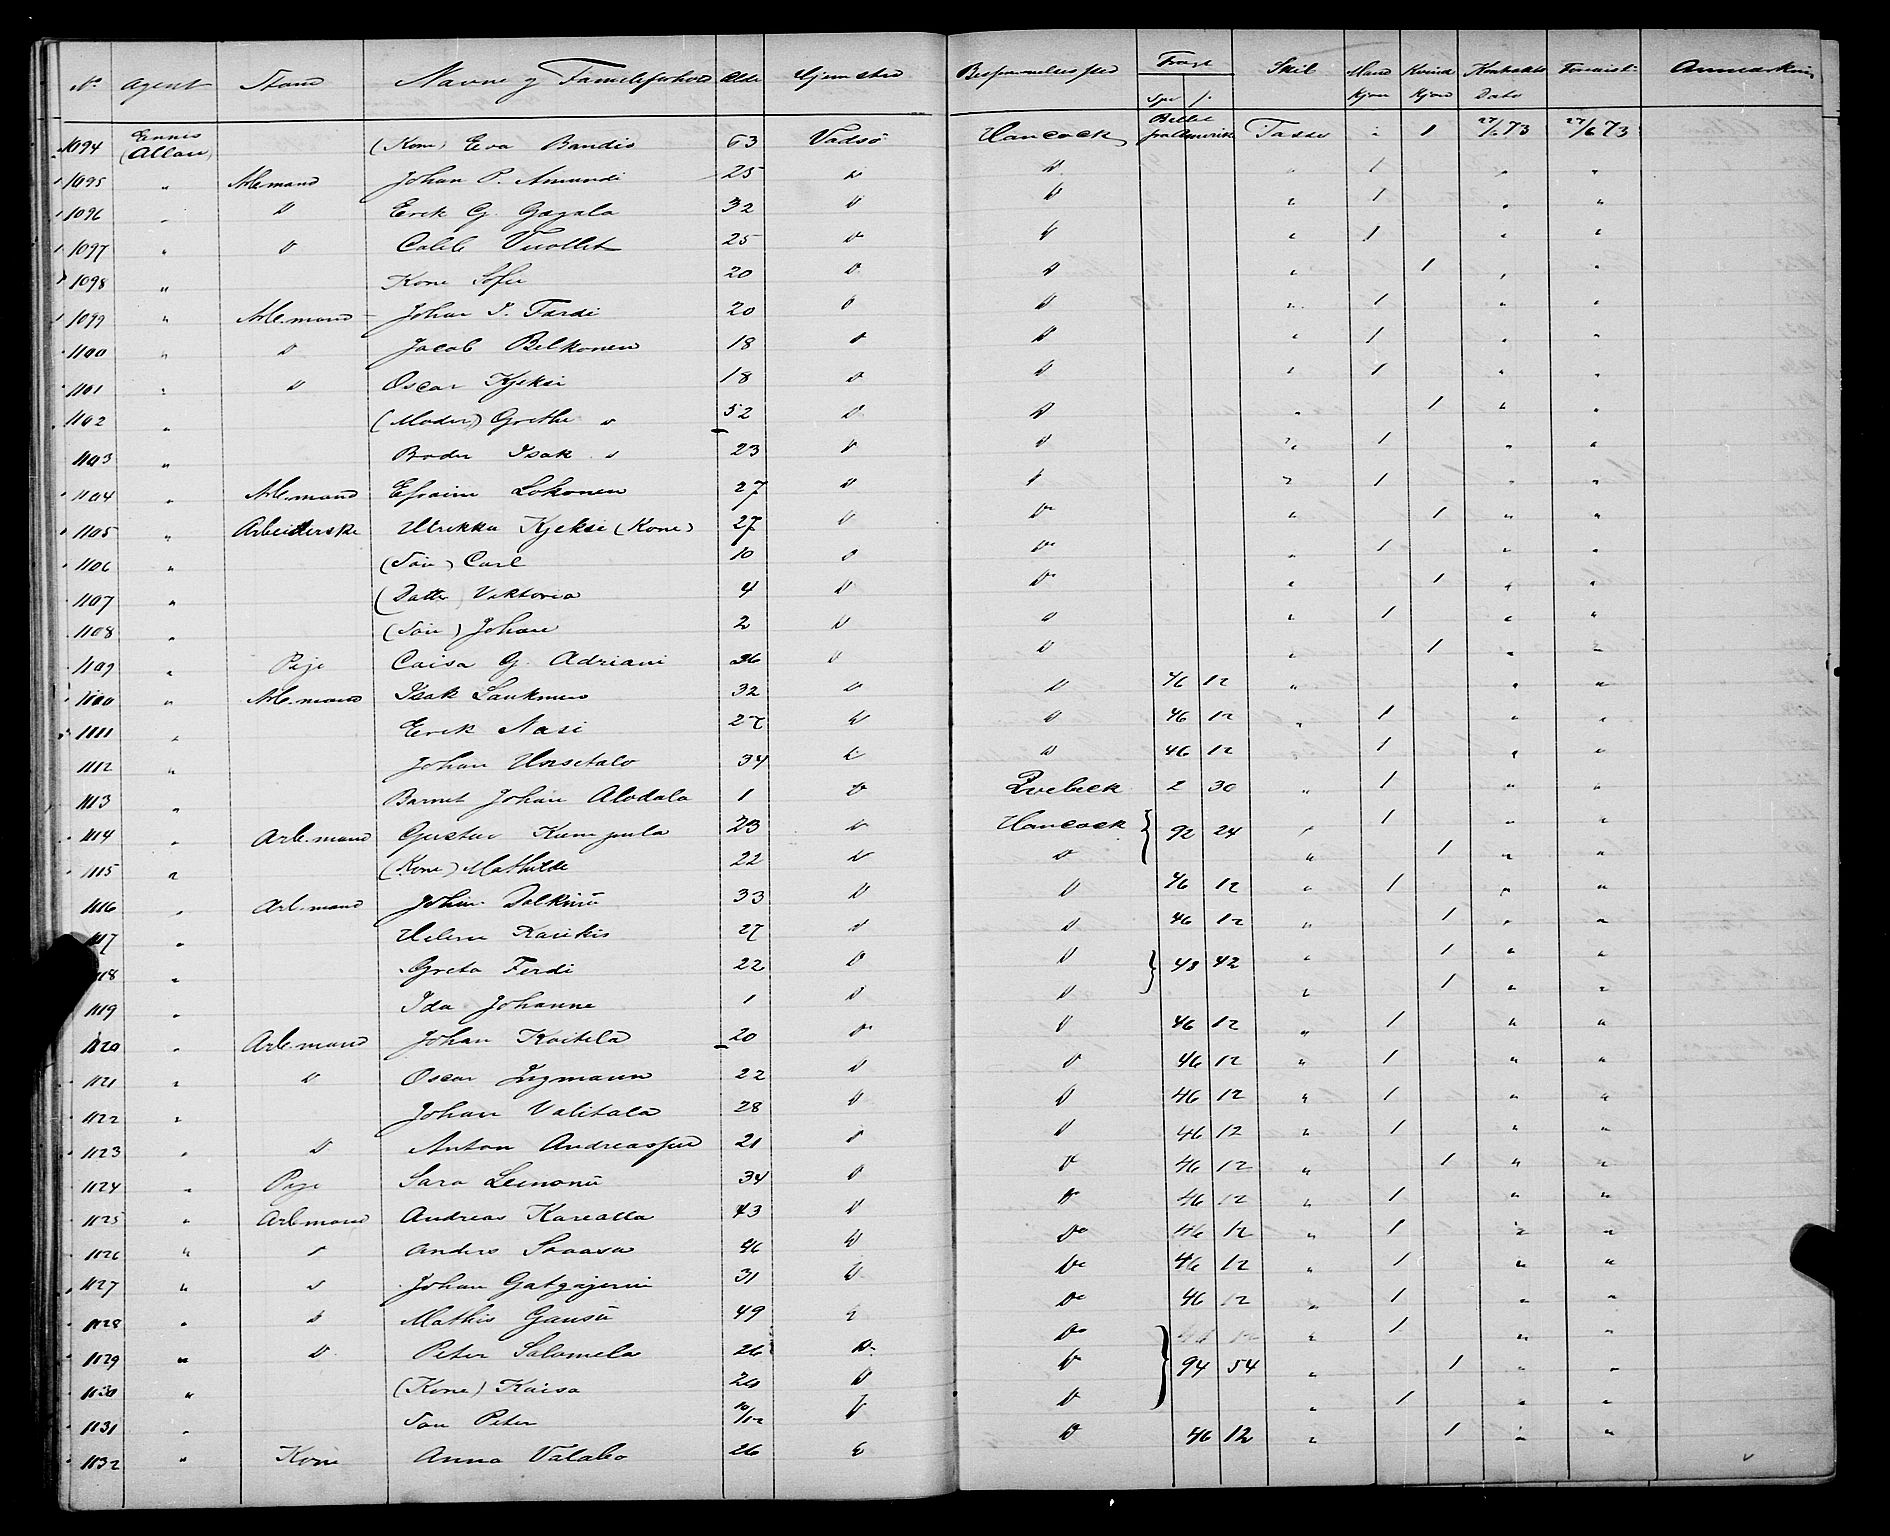 No Agent Stand Navne og Familieforhold Alder Hjemsted Bestemmelsessted Fragt Skib Mand Kvind Kontrakts Forevist Anmærkning
Spd /. kjøn kjøn Dato
1094 Ennes (Allan) (Kone) Eva Bandis 63 Vadsø Hancock Billet fra Amerika Tasso " 1 27/6 73 27/6 73
1095 " Arb.mand Johan P. Amundi 25 D D " 1 " "
1096 " D Erik G. Gagala 32 D D " 1 " "
1097 " D Caleb Vuollet 25 D D " 1 " "
1098 " Kone Sofie 20 D D " 1 " "
1099 " Arb.mand Johan I. Fardi 20 D D " 1 " "
1100 " D Jacob Belkonen 18 D D " 1 " "
1101 " D Oscar Kjeksi 18 D D " 1 " "
1102 " (Moder) Grethe D 52 D D " 1 " "
1103 " Broder Isak D 23 D D " 1 " "
1104 " Arb.mand Efraim Lokonen 27 D D " 1 " "
1105 " Arbeiderske Ulrikka Kjeksi (Kone) 27 D Do " 1 " "
1106 " (Søn) Carl 10 D Do " 1 " "
1107 " (Datter) Viktoria 4 D Do " 1 " "
1108 " (Søn) Johan 2 D D " 1 " "
1109 " Pige Caisa G. Adriani 36 D D " 1 " "
1100 " Arb.mand Isak Laukmen 32 D D 46 12 " " "
1111 " Erik Nasi 27 D D 46 12 " 1 " "
1112 " Johan Unsetalo 34 D D 46 12 " 1 " "
1113 " Barnet Johan Alodala 1 D Qvebek 2 30 " 1 " "
1114 " Arb.mand Gustav Kumpula 23 D Hancock } 92 24 " 1 " "
1115 " (Kone) Mathilde 22 D D " 1 " "
1116 " Arb.mand Johan 33 D D 46 12 " 1 " "
1117 " Helene Karikis 27 D D 46 12 " 1 " "
1118 " Greta Ferdi 22 D D } 48 42 " 1 " "
1119 " Ida Johanne 1 D D " 1 " "
1120 " Arb.mand Johan Koitela 20 Do D 46 12 " 1 " "
1121 " D Oscar Ingmann 22 D D 46 12 " 1 " "
1122 " Johan Valitala 28 D D 46 12 " 1 " "
1123 " D Anton Andreassen 21 D D 46 12 " 1 " "
1124 " Pige Sara Leinonen 34 D D 46 12 " 1 " "
1125 " Arb.mand Andreas Karealla 43 D Do 46 12 " 1 " "
1126 " D Anders 46 D Do 46 12 " 1 " "
1127 " D Johan 31 D Do 46 12 " 1 " "
1128 " D Mathis 49 D Do 46 12 " 1 " "
1129 " D Peter Salomela 26 Do Do } 94 54 " 1 " "
1130 " (Kone) Kaisa 24 D Do " 1 " "
1131 " Søn Peter 10/12 D D " 1 " "
1132 " Kone Anna Valabo 26 D D 46 12 " 1 " "